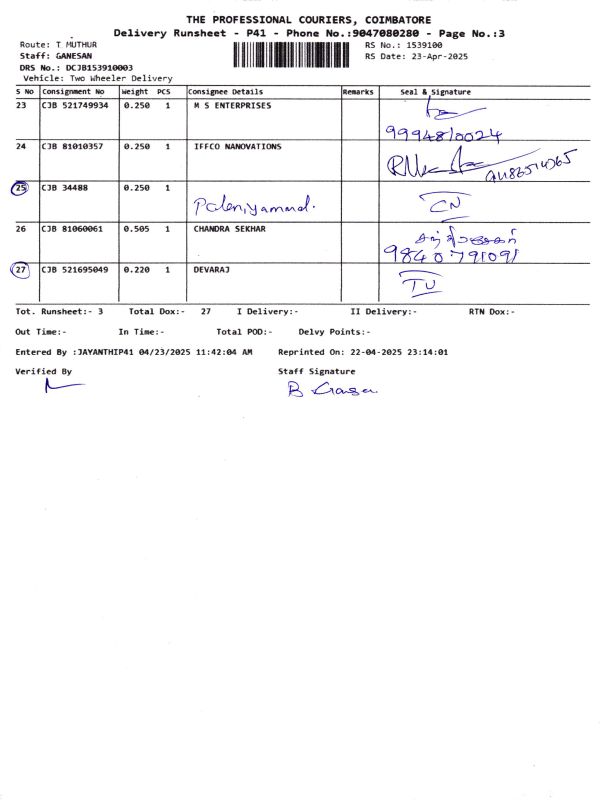 THE PROFESSIONAL COURIERS, COIMBATORE
Delivery Runsheet - P41 - Phone No.:9047080280 - Page No.:3
Route: T MUTHUR RS No.: 1539100
Staff: GANESAN RS Date: 23-Apr-2025
DRS No.: DCJB153910003
Vehicle: Two Wheeler Delivery
S No Consignment No Weight PCS Consignee Details Remarks Seal & Signature
23 CJB 521749934 0.250 1 M S ENTERPRISES
9994810024
24 CJB 81010357 0.250 1 IFFCO NANOVATIONS
25 CJB 34488 0.250 1
Palaniyammal. CN
26 CJB 81060061 0.505 1 CHANDRA SEKHAR
9840791091
27 CJB 521695049 0.220 1 DEVARAJ
TU
Tot. Runsheet:- 3 Total Dox:- 27 I Delivery:- II Delivery:- RTN Dox:-
Out Time:- In Time:- Total POD:- Delvy Points:-
Entered By :JAYANTHIP41 04/23/2025 11:42:04 AM Reprinted On: 22-04-2025 23:14:01
Verified By Staff Signature